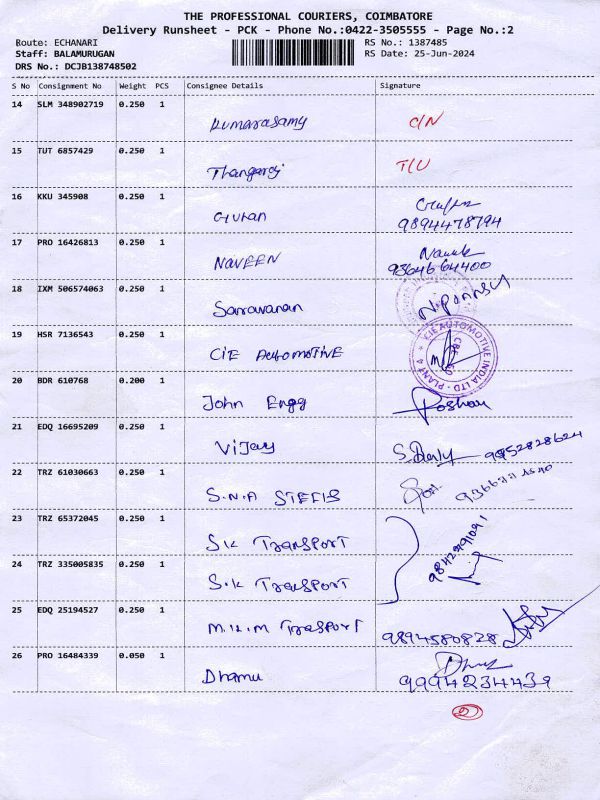 THE PROFESSIONAL COURIERS, COIMBATORE
Delivery Runsheet - PCK - Phone No.:0422-3505555 - Page No.:2
Route: ECHANARI
RS No.: 1387485
Staff: BALAMURUGAN
RS Date: 25-Jun-2024
DRS No.: DCJB138748502
S No Consignment No Weight PCS Consignee Details Signature
14 SLM 348902719 0.250 1 Kumarasamy C/N
15 TUT 6857429 0.250 1 Thangaraj T/U
16 KKU 345908 0.250 1 Guhan
9894478794
17 PRO 16426813 0.250 1 NAVEEN
9364664400
18 IXM 506574063 0.250 1 Saravanan
19 HSR 7136543 0.250 1 CIE AUTOMOTIVE
CIE AUTOMOTIVE INDIA LTD - PLANT 4
20 BDR 610768 0.200 1 John Engg Roshan
21 EDQ 16695209 0.250 1 Vijay 9952828624
22 TRZ 61030663 0.250 1 S.N.A
23 TRZ 65372045 0.250 1 S.K Transport
24 TRZ 335005835 0.250 1 S.K Transport
25 EDQ 25194527 0.250 1 9894580828
26 PRO 16484339 0.050 1 Dhamu
9994234439
2